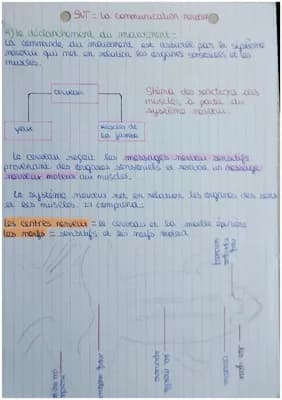 SVT = La communication nerveuse
A) le déclenchement du mouvement :
La commande du mouvement est assurée par le système
nerveux qui met en relation les organes sensoriels et les
muscles.
cerveau
yeux
muscles de
la jambe
Shéma des réactions des
muscles à partir du
système nerveux.
Le cerveau reçoit les messages nerveux sensitifs
provenant des organes sensoriels et renvoie un message
nerveux moteur au muscles.
Le système nerveux met en relation les organes des sens
et les muscles. Il comprend :
les centres nerveux = le cerveau et la moelle épinière
les nerfs = sensitifs et les nerfs moteur
cerveau
nerf moteur
la moelle